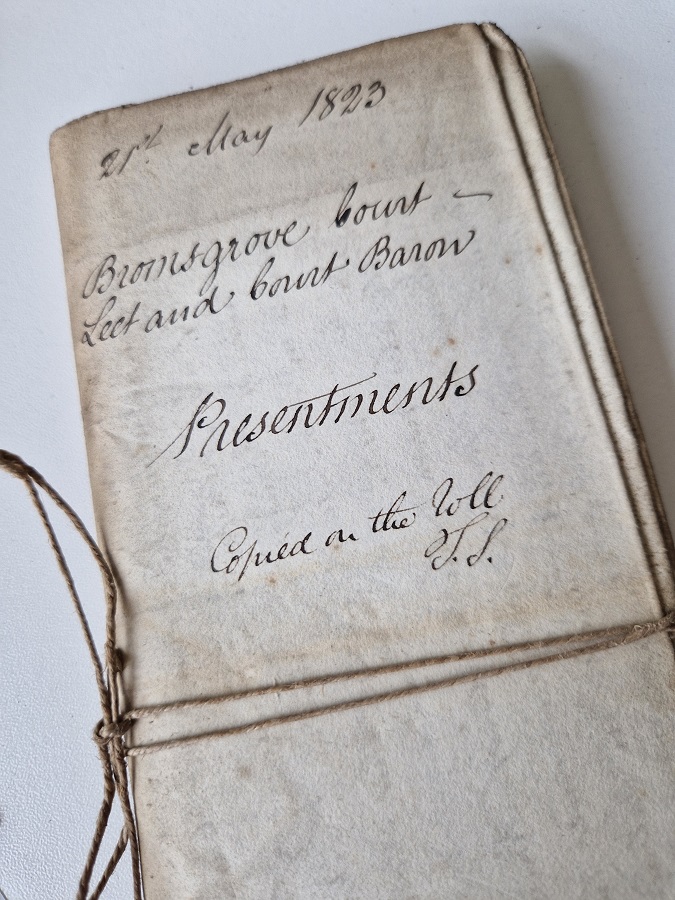 21st May 1823
Bromsgrove Court —
Leet and Court Baron
Presentments
Copied on the Roll
T.S.